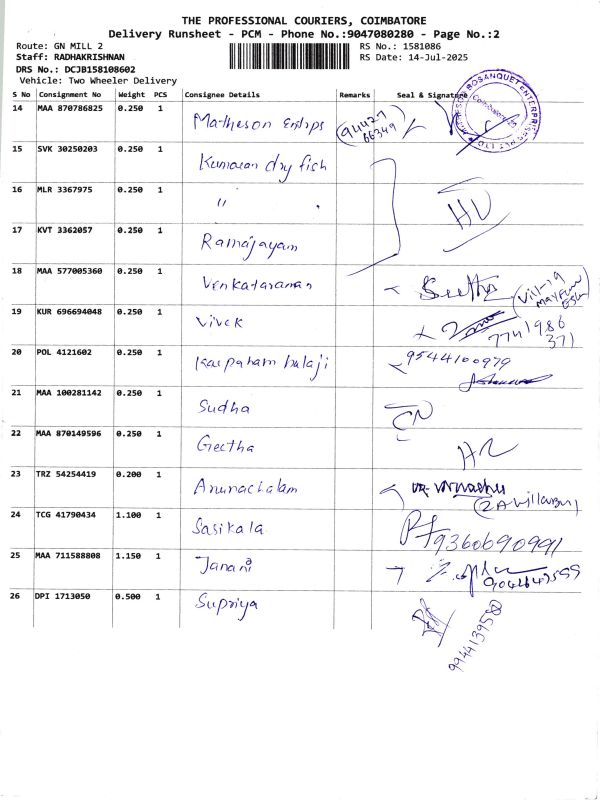 THE PROFESSIONAL COURIERS, COIMBATORE
Delivery Runsheet - PCM - Phone No.:9047080280 - Page No.:2
Route: GN MILL 2 RS No.: 1581086
Staff: RADHAKRISHNAN RS Date: 14-Jul-2025
DRS No.: DCJB158108602
Vehicle: Two Wheeler Delivery
S No Consignment No Weight PCS Consignee Details Remarks Seal & Signature
14 MAA 870786825 0.250 1 Matheson Entrps 94427 66349
BOSANQUET ENTERPRISES PVT LTD
15 SVK 30250203 0.250 1 Kumaran dry fish
16 MLR 3367975 0.250 1 "
17 KVT 3362057 0.250 1 Ramajayam
18 MAA 577005360 0.250 1 Venkataraman
19 KUR 696694048 0.250 1 Vivek 7741986 371
20 POL 4121602 0.250 1 Karpaham balaji 9544100979
21 MAA 100281142 0.250 1 Sudha
22 MAA 870149596 0.250 1 Geetha
23 TRZ 54254419 0.200 1 Arunachalam
24 TCG 41790434 1.100 1 Sasikala 9360690991
25 MAA 711588808 1.150 1 Janani
26 DPI 1713050 0.500 1 Supriya
9944139580